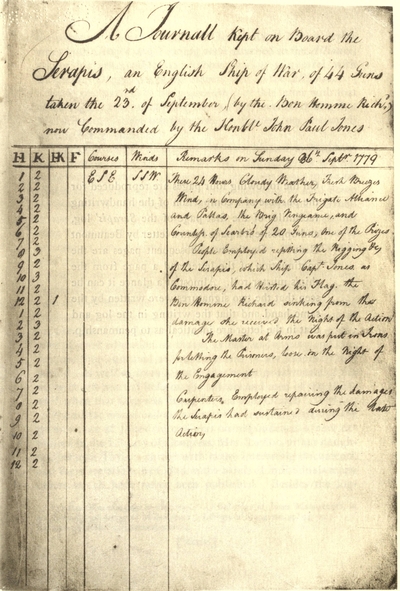 A Journall Kept on Board the
Serapis, an English Ship of War, of 44 Guns
taken the 23.rd of September (by the Bon Homme Richd,)
now Commanded by the Honble. John Paul Jones
H K HK F Courses Winds Remarks on Sunday 26th Septr. 1779
1 2 ESE SSW These 24 Hours, Cloudy Weather, Fresh Breezes
2 2 Wind, in Company with the Frigate Alliance
3 2
4 2 and Pallas, the Brig Vengeance, and
5 2
6 2 Countess of Scarbro' of 20 Guns, One of the Prizes
7 2 People Employed repairing the Rigging &c
8 3
9 2 of the Serapis, which Ship Capt. Jones as
10 3
11 2 Commodore, had Histed his Flag. the
12 2 1 Bon Homme Richard sinking from the
1 2
2 3 damage she received the Night of the Action
3 2 The Master at Arms was put in Irons
4 2
5 2 for letting the Prisoners, loose on the Night of
6 2 the Engagement
7 2 Carpenters, Employed repairing the damages
8 2
9 2 the Serapis had sustained during the
10 2 Action,
11 2
12 2